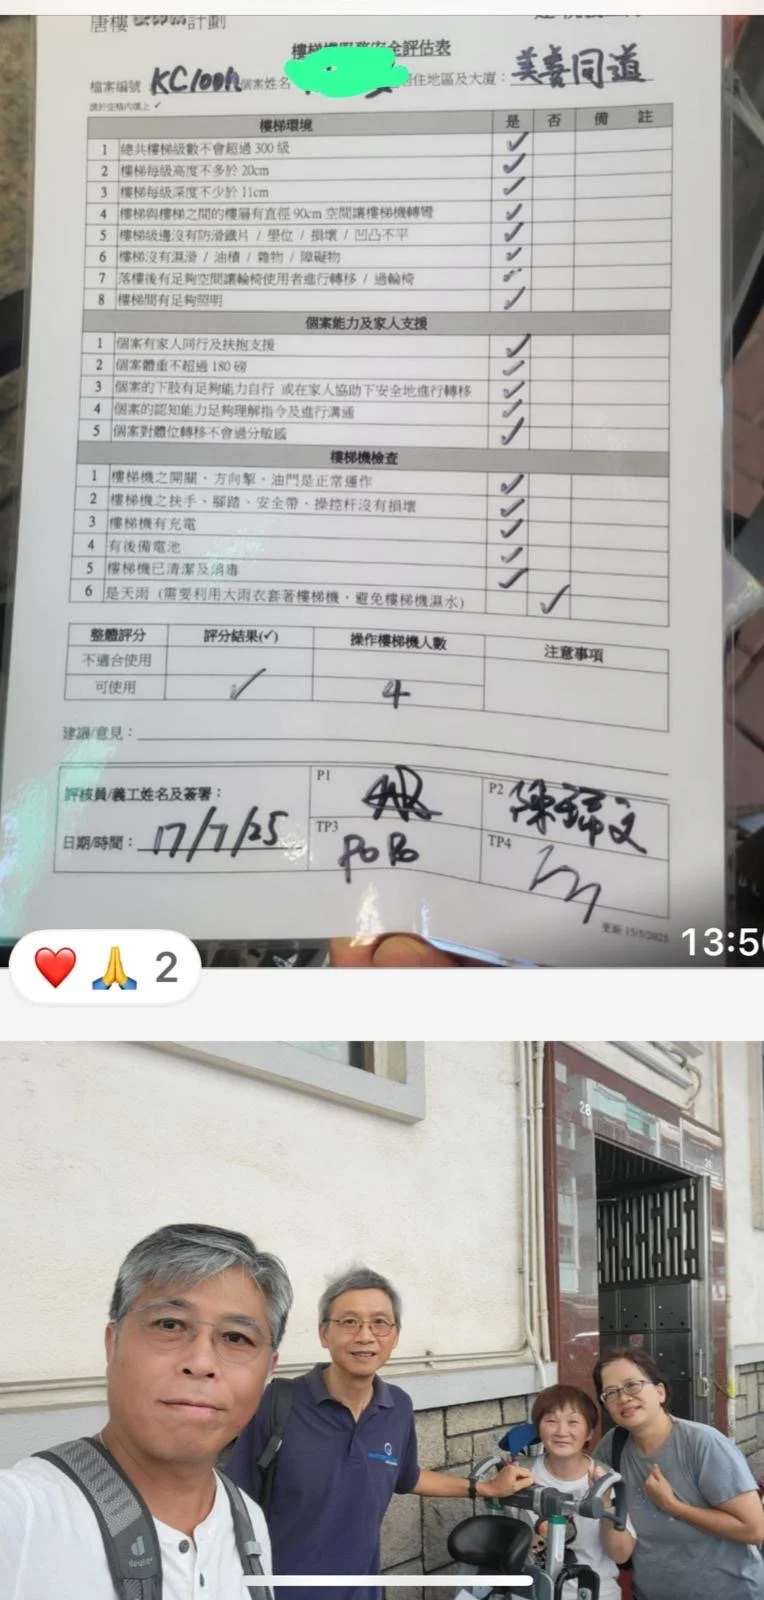 唐樓
計劃
樓梯機服務安全評估表
檔案編號 KC100h 個案姓名 居住地區及大廈：美善同道
請於空格內填上 ✓
樓梯環境 是 否 備 註
1 總共樓梯級數不會超過 300 級 ✓
2 樓梯每級高度不多於 20cm ✓
3 樓梯每級深度不少於 11cm ✓
4 樓梯與樓梯之間的樓層有直徑 90cm 空間讓樓梯機轉彎 ✓
5 樓梯級邊沒有防滑鐵片 / 壆位 / 損壞 / 凹凸不平 ✓
6 樓梯沒有濕滑 / 油積 / 雜物 / 障礙物 ✓
7 落樓後有足夠空間讓輪椅使用者進行轉移 / 過輪椅 ✓
8 樓梯間有足夠照明 ✓
個案能力及家人支援
1 個案有家人同行及扶抱支援 ✓
2 個案體重不超過 180 磅 ✓
3 個案的下肢有足夠能力自行 或在家人協助下安全地進行轉移 ✓
4 個案的認知能力足夠理解指令及進行溝通 ✓
5 個案對體位轉移不會過分敏感 ✓
樓梯機檢查
1 樓梯機之開關、方向掣、油門是正常運作 ✓
2 樓梯機之扶手、腳踏、安全帶、操控杆沒有損壞 ✓
3 樓梯機有充電 ✓
4 有後備電池 ✓
5 樓梯機已清潔及消毒 ✓
6 是天雨 (需要利用大雨衣套著樓梯機，避免樓梯機濕水) ✓
整體評分 評分結果(✓) 操作樓梯機人數 注意事項
不適合使用
可使用 ✓ 4
建議/意見：
評核員/義工姓名及簽署： P1 P2 陳
日期/時間：17/7/25 TP3 PoPo TP4
更新 15/5/2025
13:5
❤️ 🙏 2
28
deuter